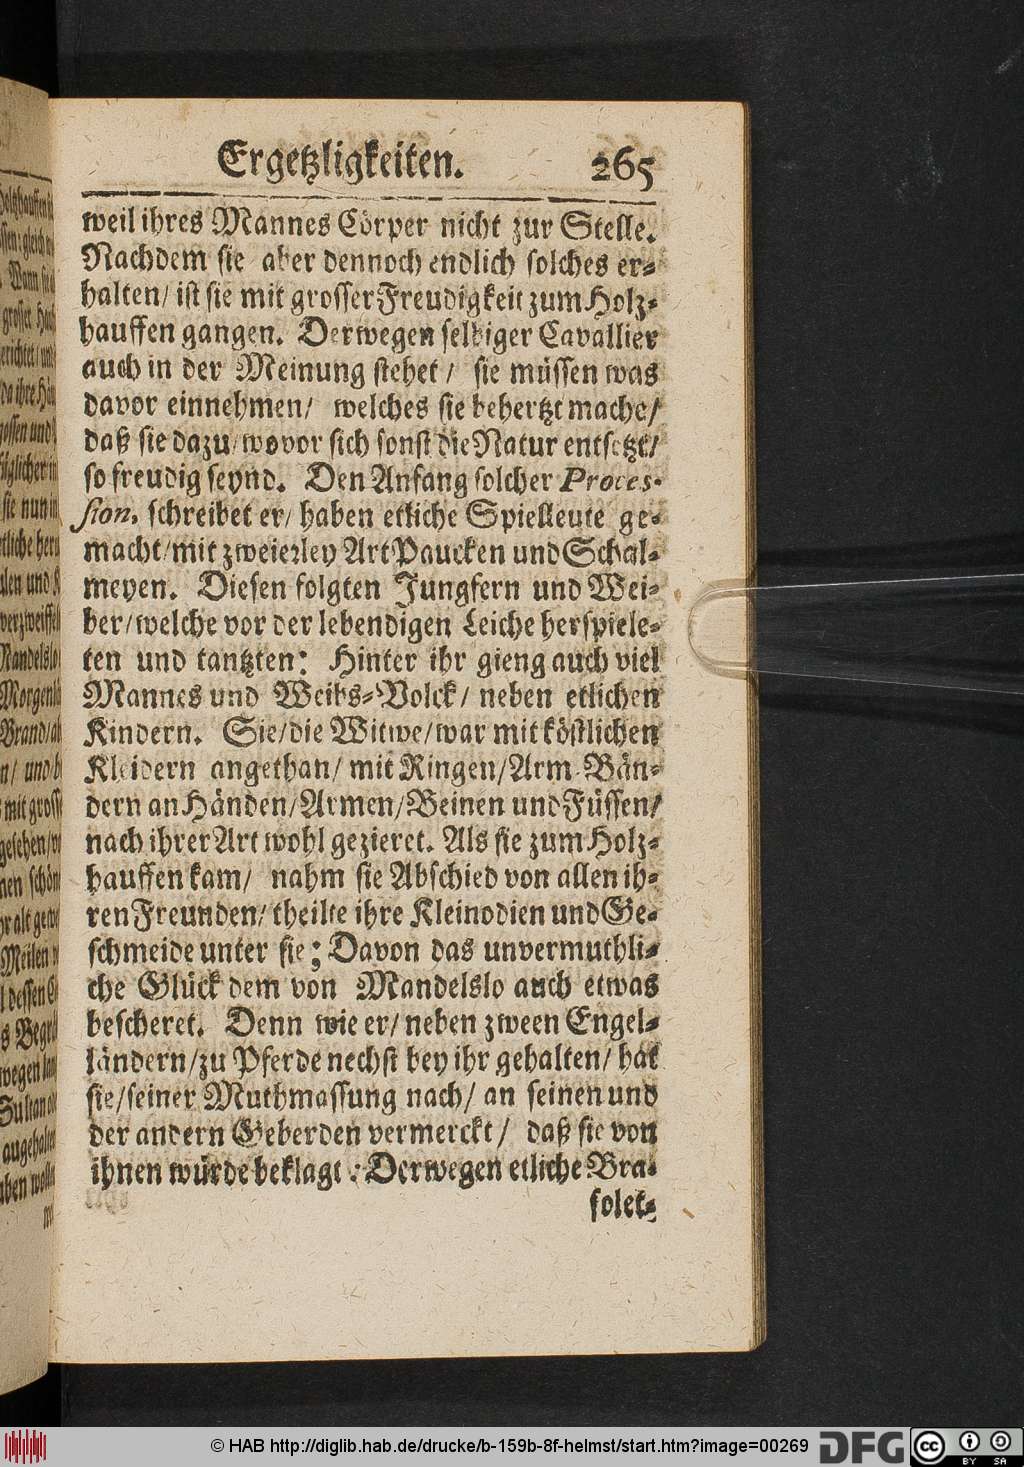 Ergetzligkeiten. 265
weil ihres Mannes Cörper nicht zur Stelle.
Nachdem sie aber dennoch endlich solches er⸗
halten/ ist sie mit grosser Freudigkeit zum Holz⸗
hauffen gangen. Derwegen selbiger Cavallier
auch in der Meinung stehet/ sie müssen was
davor einnehmen/ welches sie behertzt mache/
daß sie dazu/ wovor sich sonst die Natur entsetzt/
so freudig seynd. Den Anfang solcher Proces-
sion, schreibet er/ haben etliche Spielleute ge⸗
macht/ mit zweierley Art Paucken und Schal⸗
meyen. Diesen folgten Jungfern und Wei⸗
ber/ welche vor der lebendigen Leiche herspiele⸗
ten und tantzten: Hinter ihr gieng auch viel
Mannes und Weibs⸗Volck/ neben etlichen
Kindern. Sie/ die Witwe/ war mit köstlichen
Kleidern angethan/ mit Ringen/ Arm⸗Bän⸗
dern an Händen/ Armen/ Beinen und Füssen/
nach ihrer Art wohl gezieret. Als sie zum Holz⸗
hauffen kam/ nahm sie Abschied von allen ih⸗
ren Freunden/ theilte ihre Kleinodien und Ge⸗
schmeide unter sie; Davon das unvermuthli⸗
che Glück dem von Mandelslo auch etwas
bescheret. Denn wie er/ neben zween Engel⸗
ländern/ zu Pferde nechst bey ihr gehalten/ hat
sie/ seiner Muthmassung nach/ an seinen und
der andern Geberden vermerckt/ daß sie von
ihnen würde beklagt: Derwegen etliche Bra⸗
solet⸗
© HAB http://diglib.hab.de/drucke/b-159b-8f-helmst/start.htm?image=00269 DFG cc BY SA